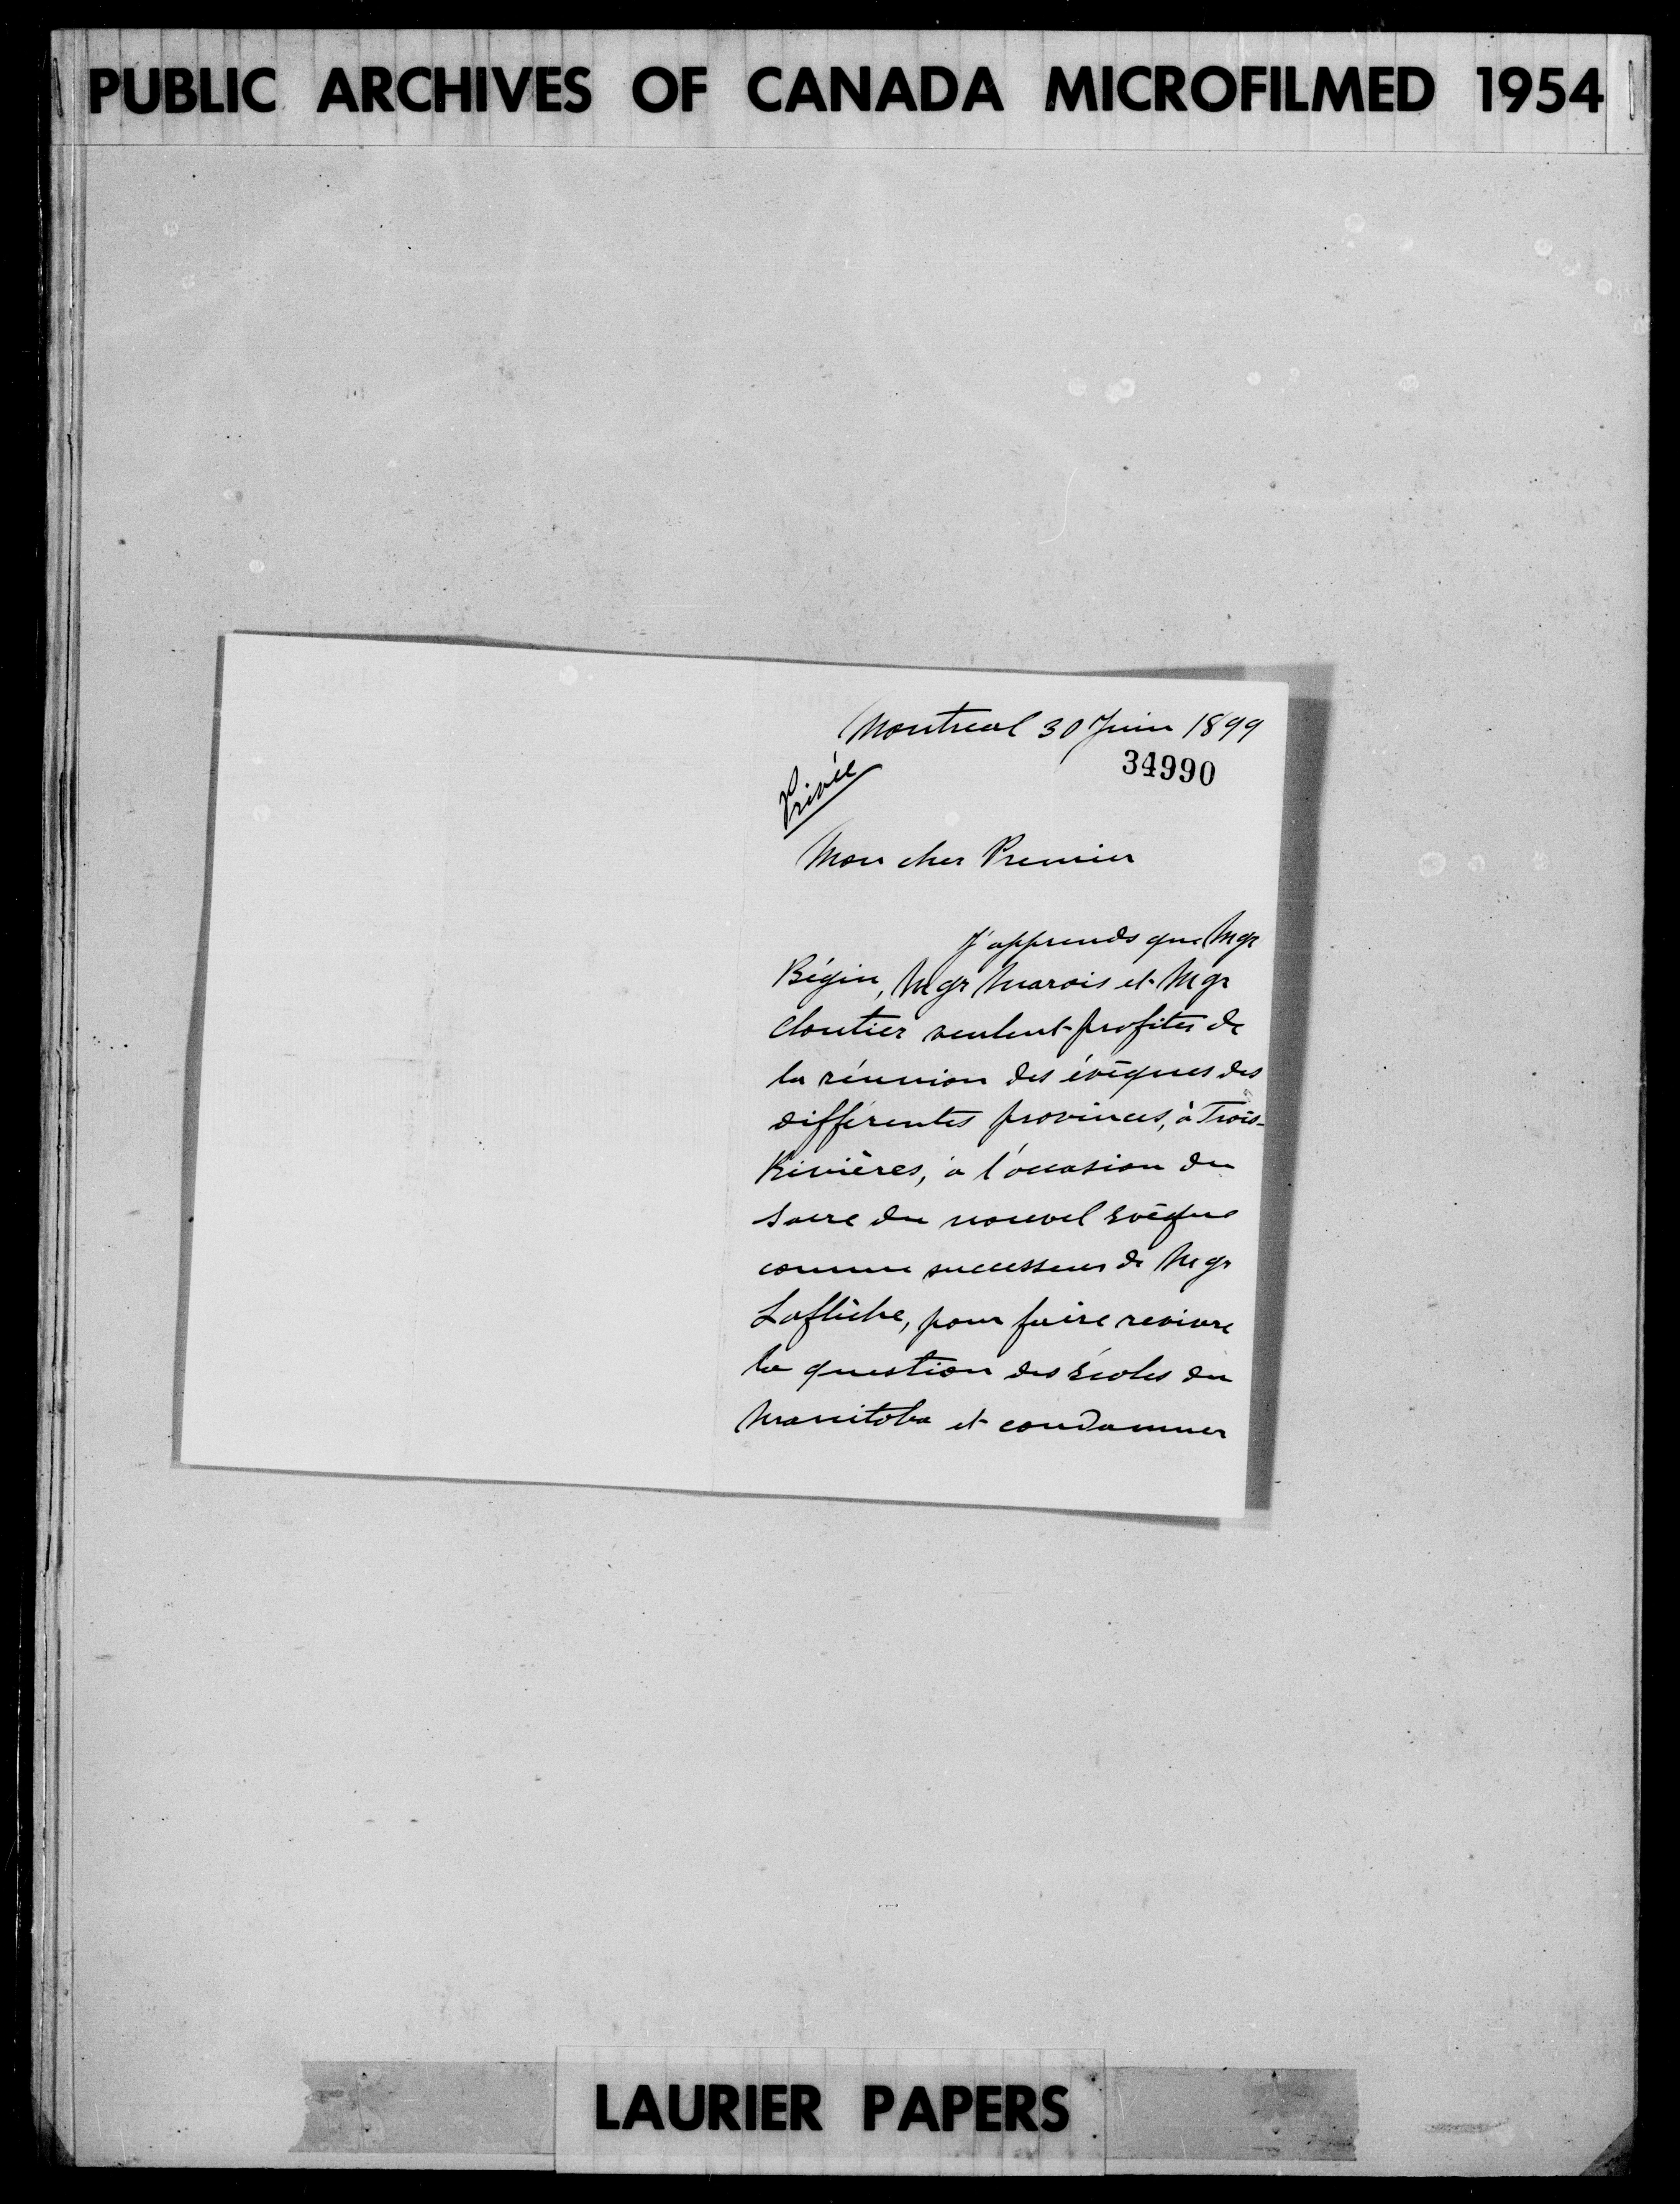 PUBLIC ARCHIVES OF CANADA MICROFILMED 1954
Montreal 30 Juin 1899
34990
Privée
Mon cher Premier
J'apprends que Mgr
Bégin, Mgr Marois et Mgr
Cloutier veulent profiter de
la réunion des évêques des
différentes provinces, à Trois-
Rivières, à l'occasion du
sacre du nouvel Evêque
comme successeur de Mgr
Laflèche, pour faire revivre
la question des Écoles du
Manitoba et condamner
LAURIER PAPERS